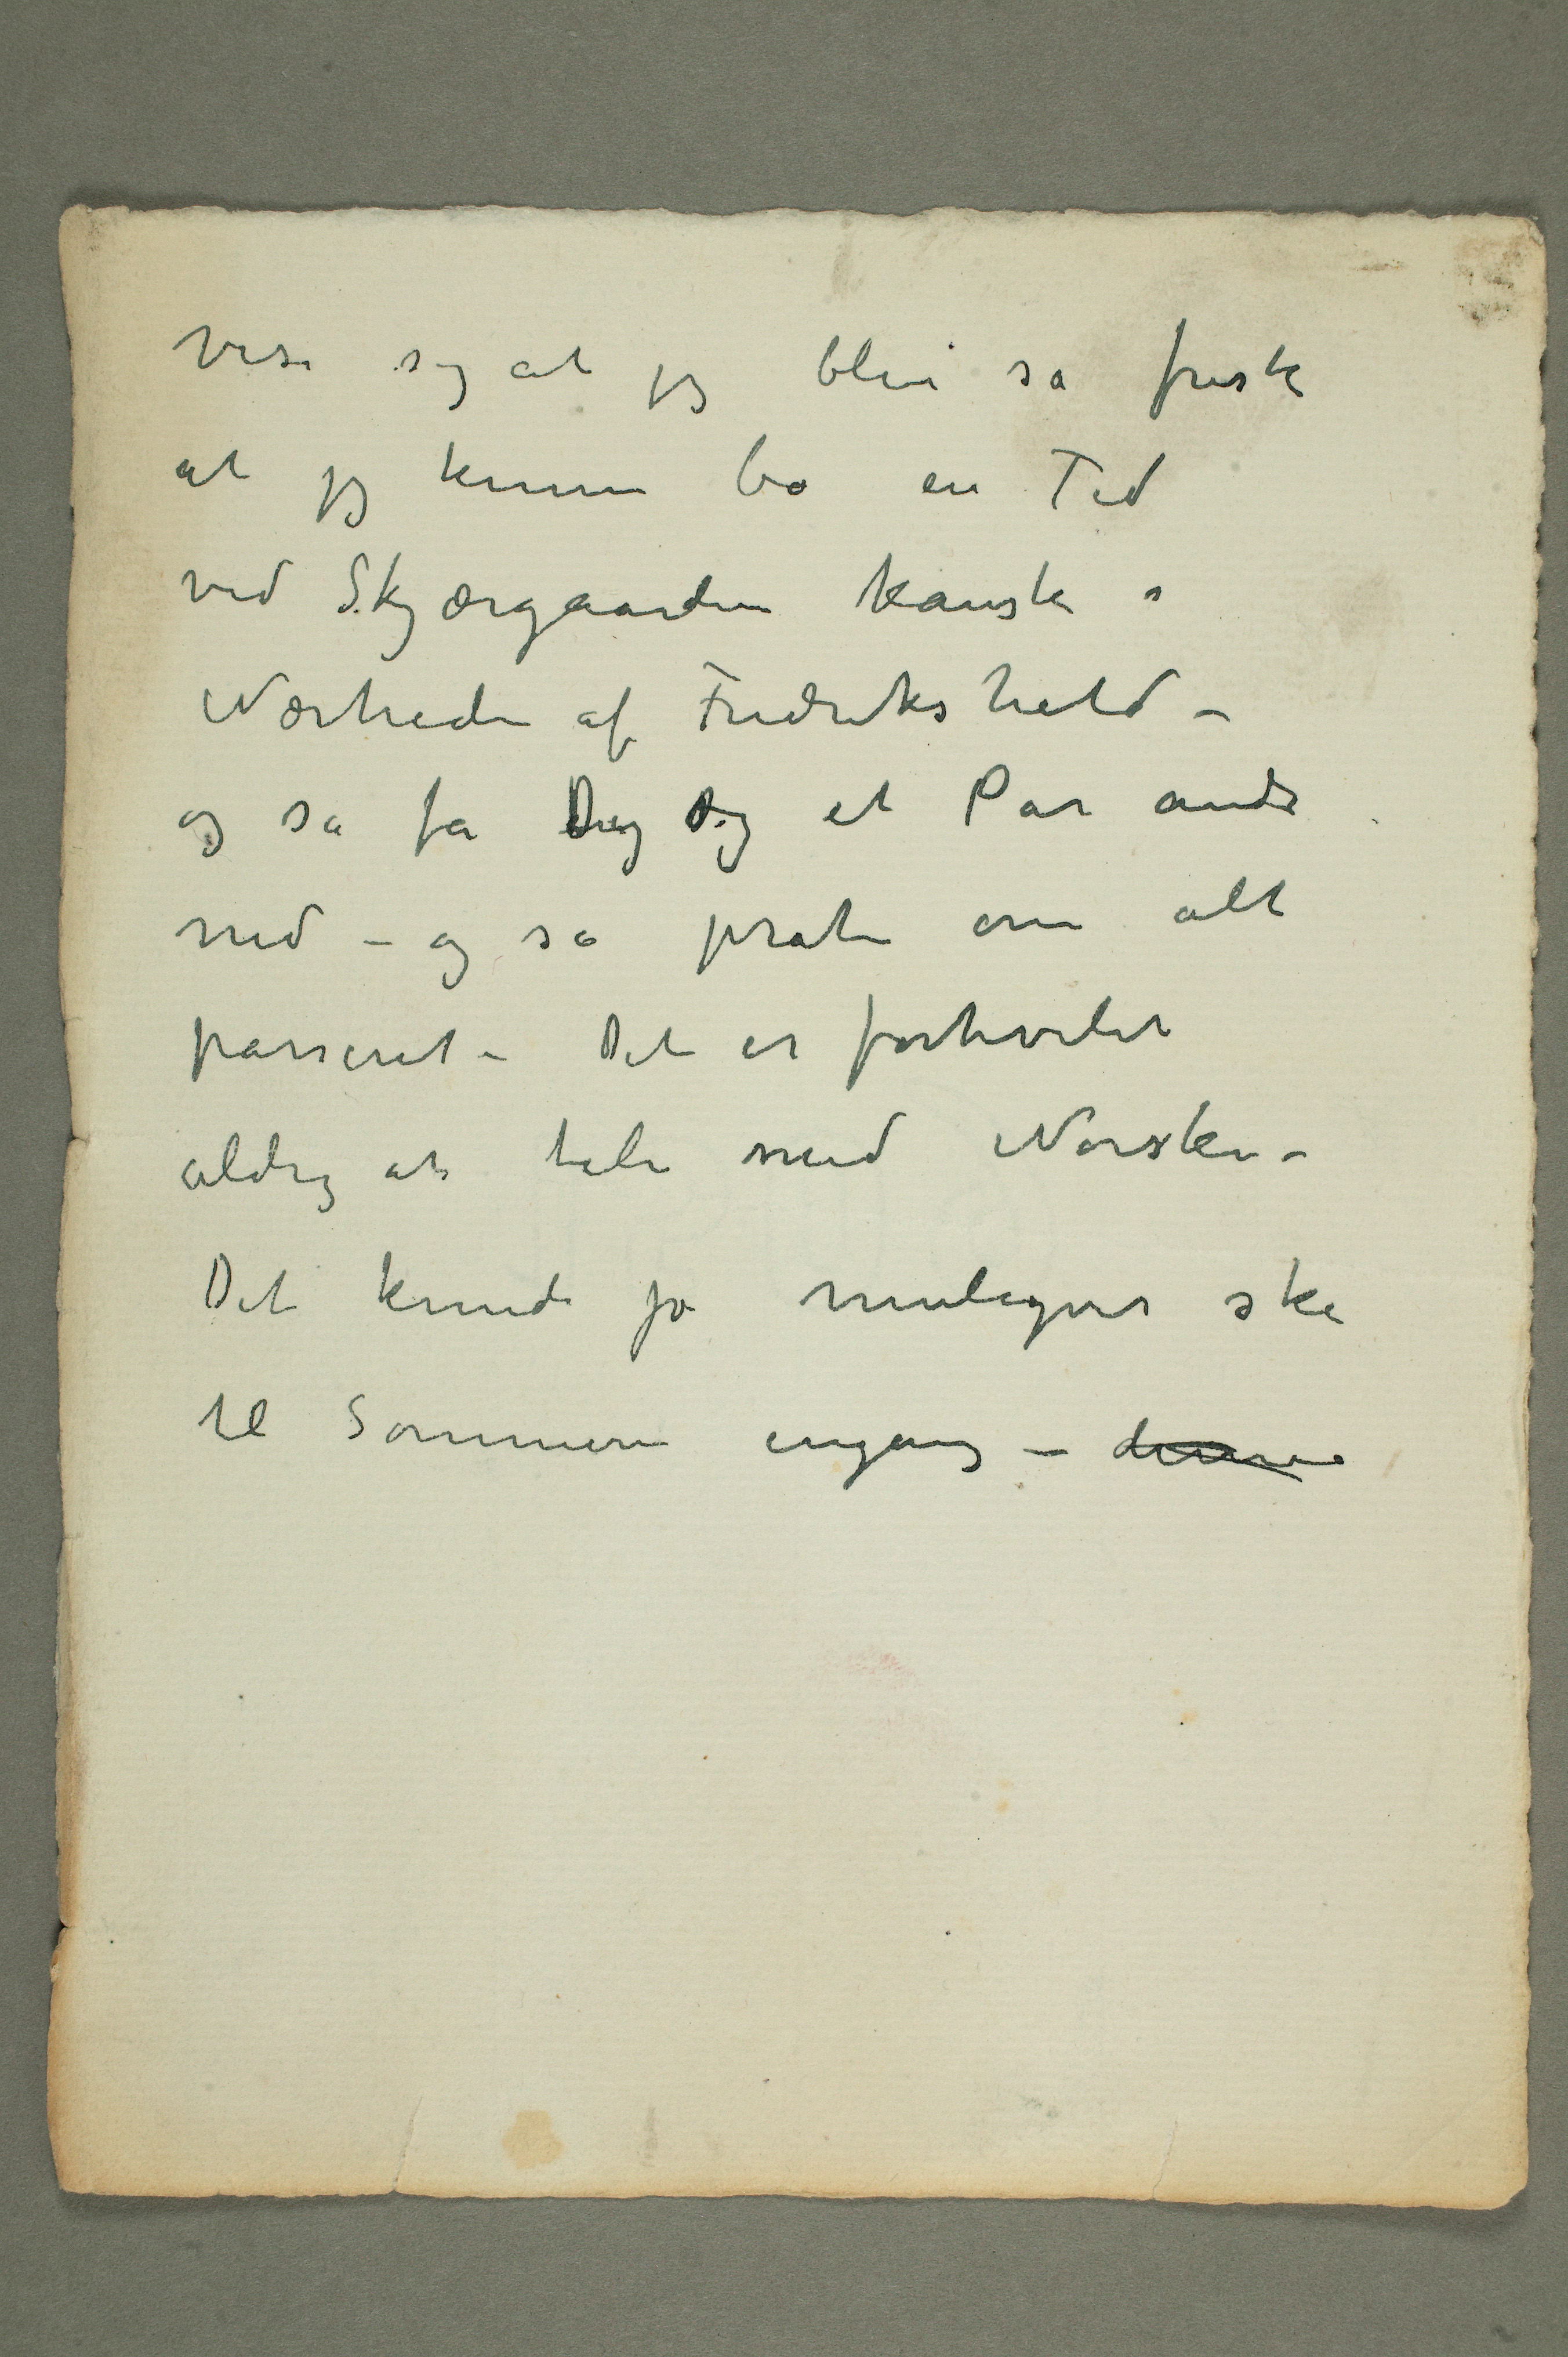 vise sig at jeg blei så frisk
at jeg kunne bo en Tid
ved Skjærgaarden kanske i
Nærheden af Fredrikshald –
og så få Dig Dig et Par andre
ned – og så prate om alt
passeret – Det er fortvilet
aldrig at tale med Norske –
Det kunde jo muligvis ske
til Sommeren engang –